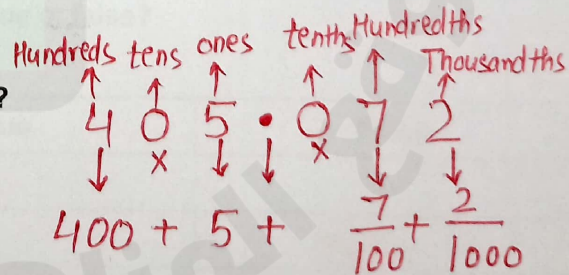 Hundreds tens ones tenths Hundredths Thousandths
?
4 0 5 . 0 7 2
x x
400 + 5 + 7/100 + 2/1000